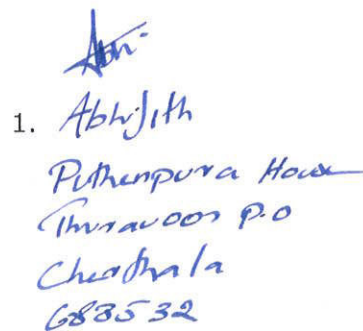 Abhi
1. Abhijith
Puthenpura House
Thuravoor P.O
Cherthala
688532